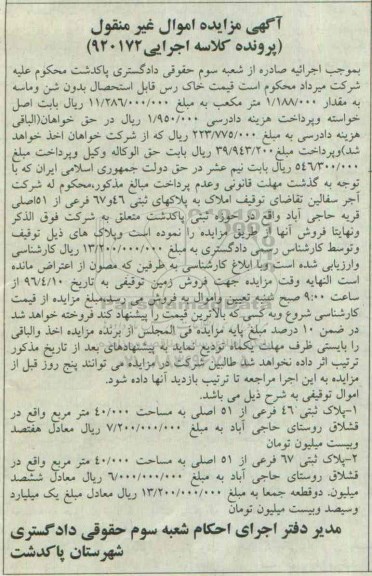 آگهی مزایده اموال غیر منقول
(پرونده کلاسه اجرایی۹۲۰۱۷۲)
بموجب اجرائیه صادره از شعبه سوم حقوقی دادگستری پاکدشت محکوم علیه
شرکت میرداد محکوم است قیمت خاک رس قابل استحصال بدون شن وماسه
به مقدار ۱/۱۸۸/۰۰۰ متر مکعب به مبلغ ۱۱/۲۸۶/۰۰۰/۰۰۰ ریال بابت اصل
خواسته وپرداخت هزینه دادرسی ۱/۹۵۰/۰۰۰ ریال در حق خواهان(الباقی
هزینه دادرسی به مبلغ ۲۲۳/۷۷۵/۰۰۰ ریال که از شرکت خواهان اخذ خواهد
شد)وپرداخت مبلغ ۳۹/۹۴۳/۲۰۰ ریال بابت حق الوکاله وکیل وپرداخت مبلغ
۵۴۶/۳۰۰/۰۰۰ ریال بابت نیم عشر در حق دولت جمهوری اسلامی ایران که با
توجه به گذشت مهلت قانونی وعدم پرداخت مبالغ مذکور،محکوم له شرکت
آجر سفالین تقاضای توقیف املاک به پلاکهای ثبتی ۴۶و۶۷ فرعی از ۵۱اصلی
قریه حاجی آباد واقع در حوزه ثبتی پاکدشت متعلق به شرکت فوق الذکر
ونهایتا فروش آنها از طریق مزایده را نموده است وپلاک های ذیل توقیف
وتوسط کارشناس رسمی دادگستری به مبلغ ۱۳/۲۰۰/۰۰۰/۰۰۰ ریال کارشناسی
وارزیابی شده است وبا ابلاغ کارشناسی به طرفین که مصون از اعتراض مانده
است النهایه وقت مزایده جهت فروش زمین توقیفی به تاریخ ۹۶/۴/۱۰ از
ساعت ۹:۰۰ صبح شنبه تعیین واموال به فروش می رسد.مبلغ مزایده از قیمت
کارشناسی شروع وبه کسی که بالاترین قیمت را پیشنهاد کند فروخته خواهد شد
در ضمن ۱۰ درصد مبلغ پایه مزایده فی المجلس از برنده مزایده اخذ والباقی
را بایستی ظرف مهلت یکماه تودیع نماید به پیشنهادهای بعد از تاریخ مذکور
ترتیب اثر داده نخواهد شد طالبین شرکت در مزایده می توانند پنج روز قبل از
مزایده به این اجرا مراجعه تا ترتیب بازدید آنها داده شود.
اموال توقیفی به شرح ذیل می باشد.
۱-پلاک ثبتی ۴۶ فرعی از ۵۱ اصلی به مساحت ۴۰/۰۰۰ متر مربع واقع در
قشلاق روستای حاجی آباد به مبلغ ۷/۲۰۰/۰۰۰/۰۰۰ ریال معادل هفتصد
وبیست میلیون تومان
۲-پلاک ثبتی ۶۷ فرعی از ۵۱ اصلی به مساحت ۴۰/۰۰۰ متر مربع واقع در
قشلاق روستای حاجی آباد به مبلغ ۶/۰۰۰/۰۰۰/۰۰۰ ریال معادل ششصد
میلیون. دوقطعه جمعا به مبلغ ۱۳/۲۰۰/۰۰۰/۰۰۰ ریال معادل مبلغ یک میلیارد
وسیصد وبیست میلیون تومان
مدیر دفتر اجرای احکام شعبه سوم حقوقی دادگستری
شهرستان پاکدشت